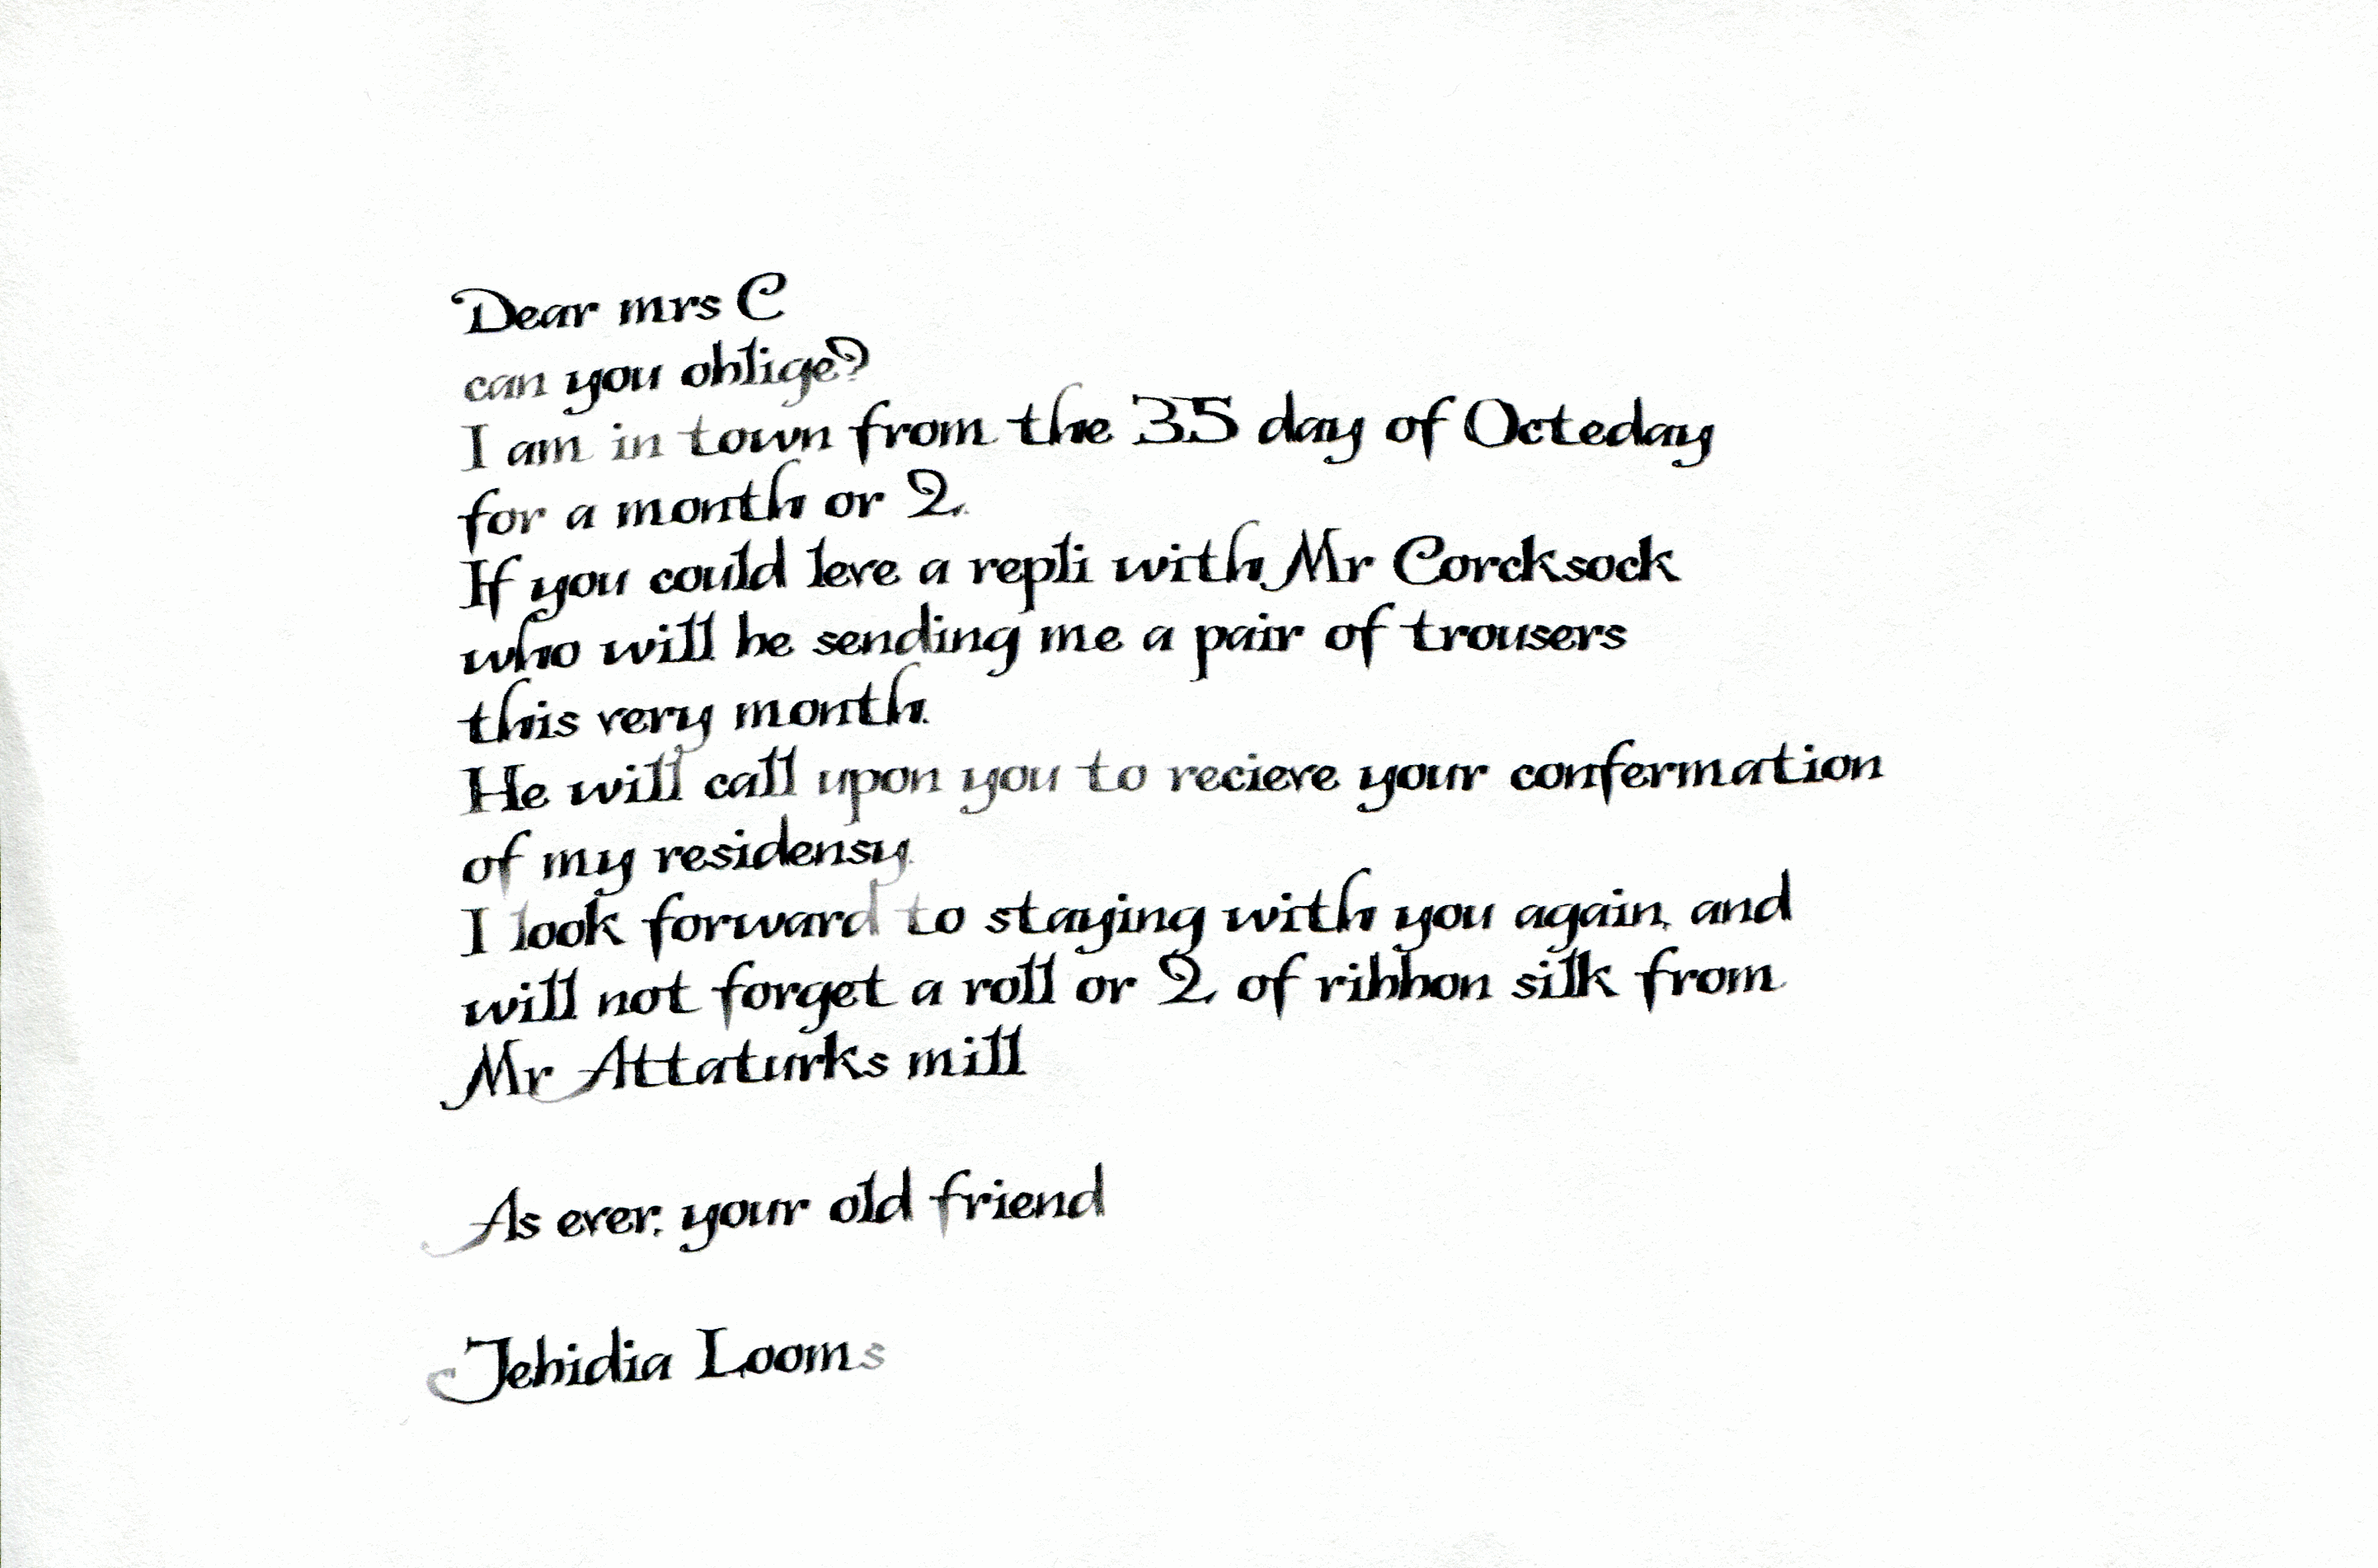 Dear mrs C
can you oblige?
I am in town from the 35 day of Octeday
for a month or 2.
If you could leve a repli with Mr Corcksock
who will be sending me a pair of trousers
this very month.
He will call upon you to recieve your confermation
of my residensy.
I look forward to staying with you again, and
will not forget a roll or 2, of ribbon silk from
Mr Attaturks mill

As ever, your old friend

Jebidia Looms